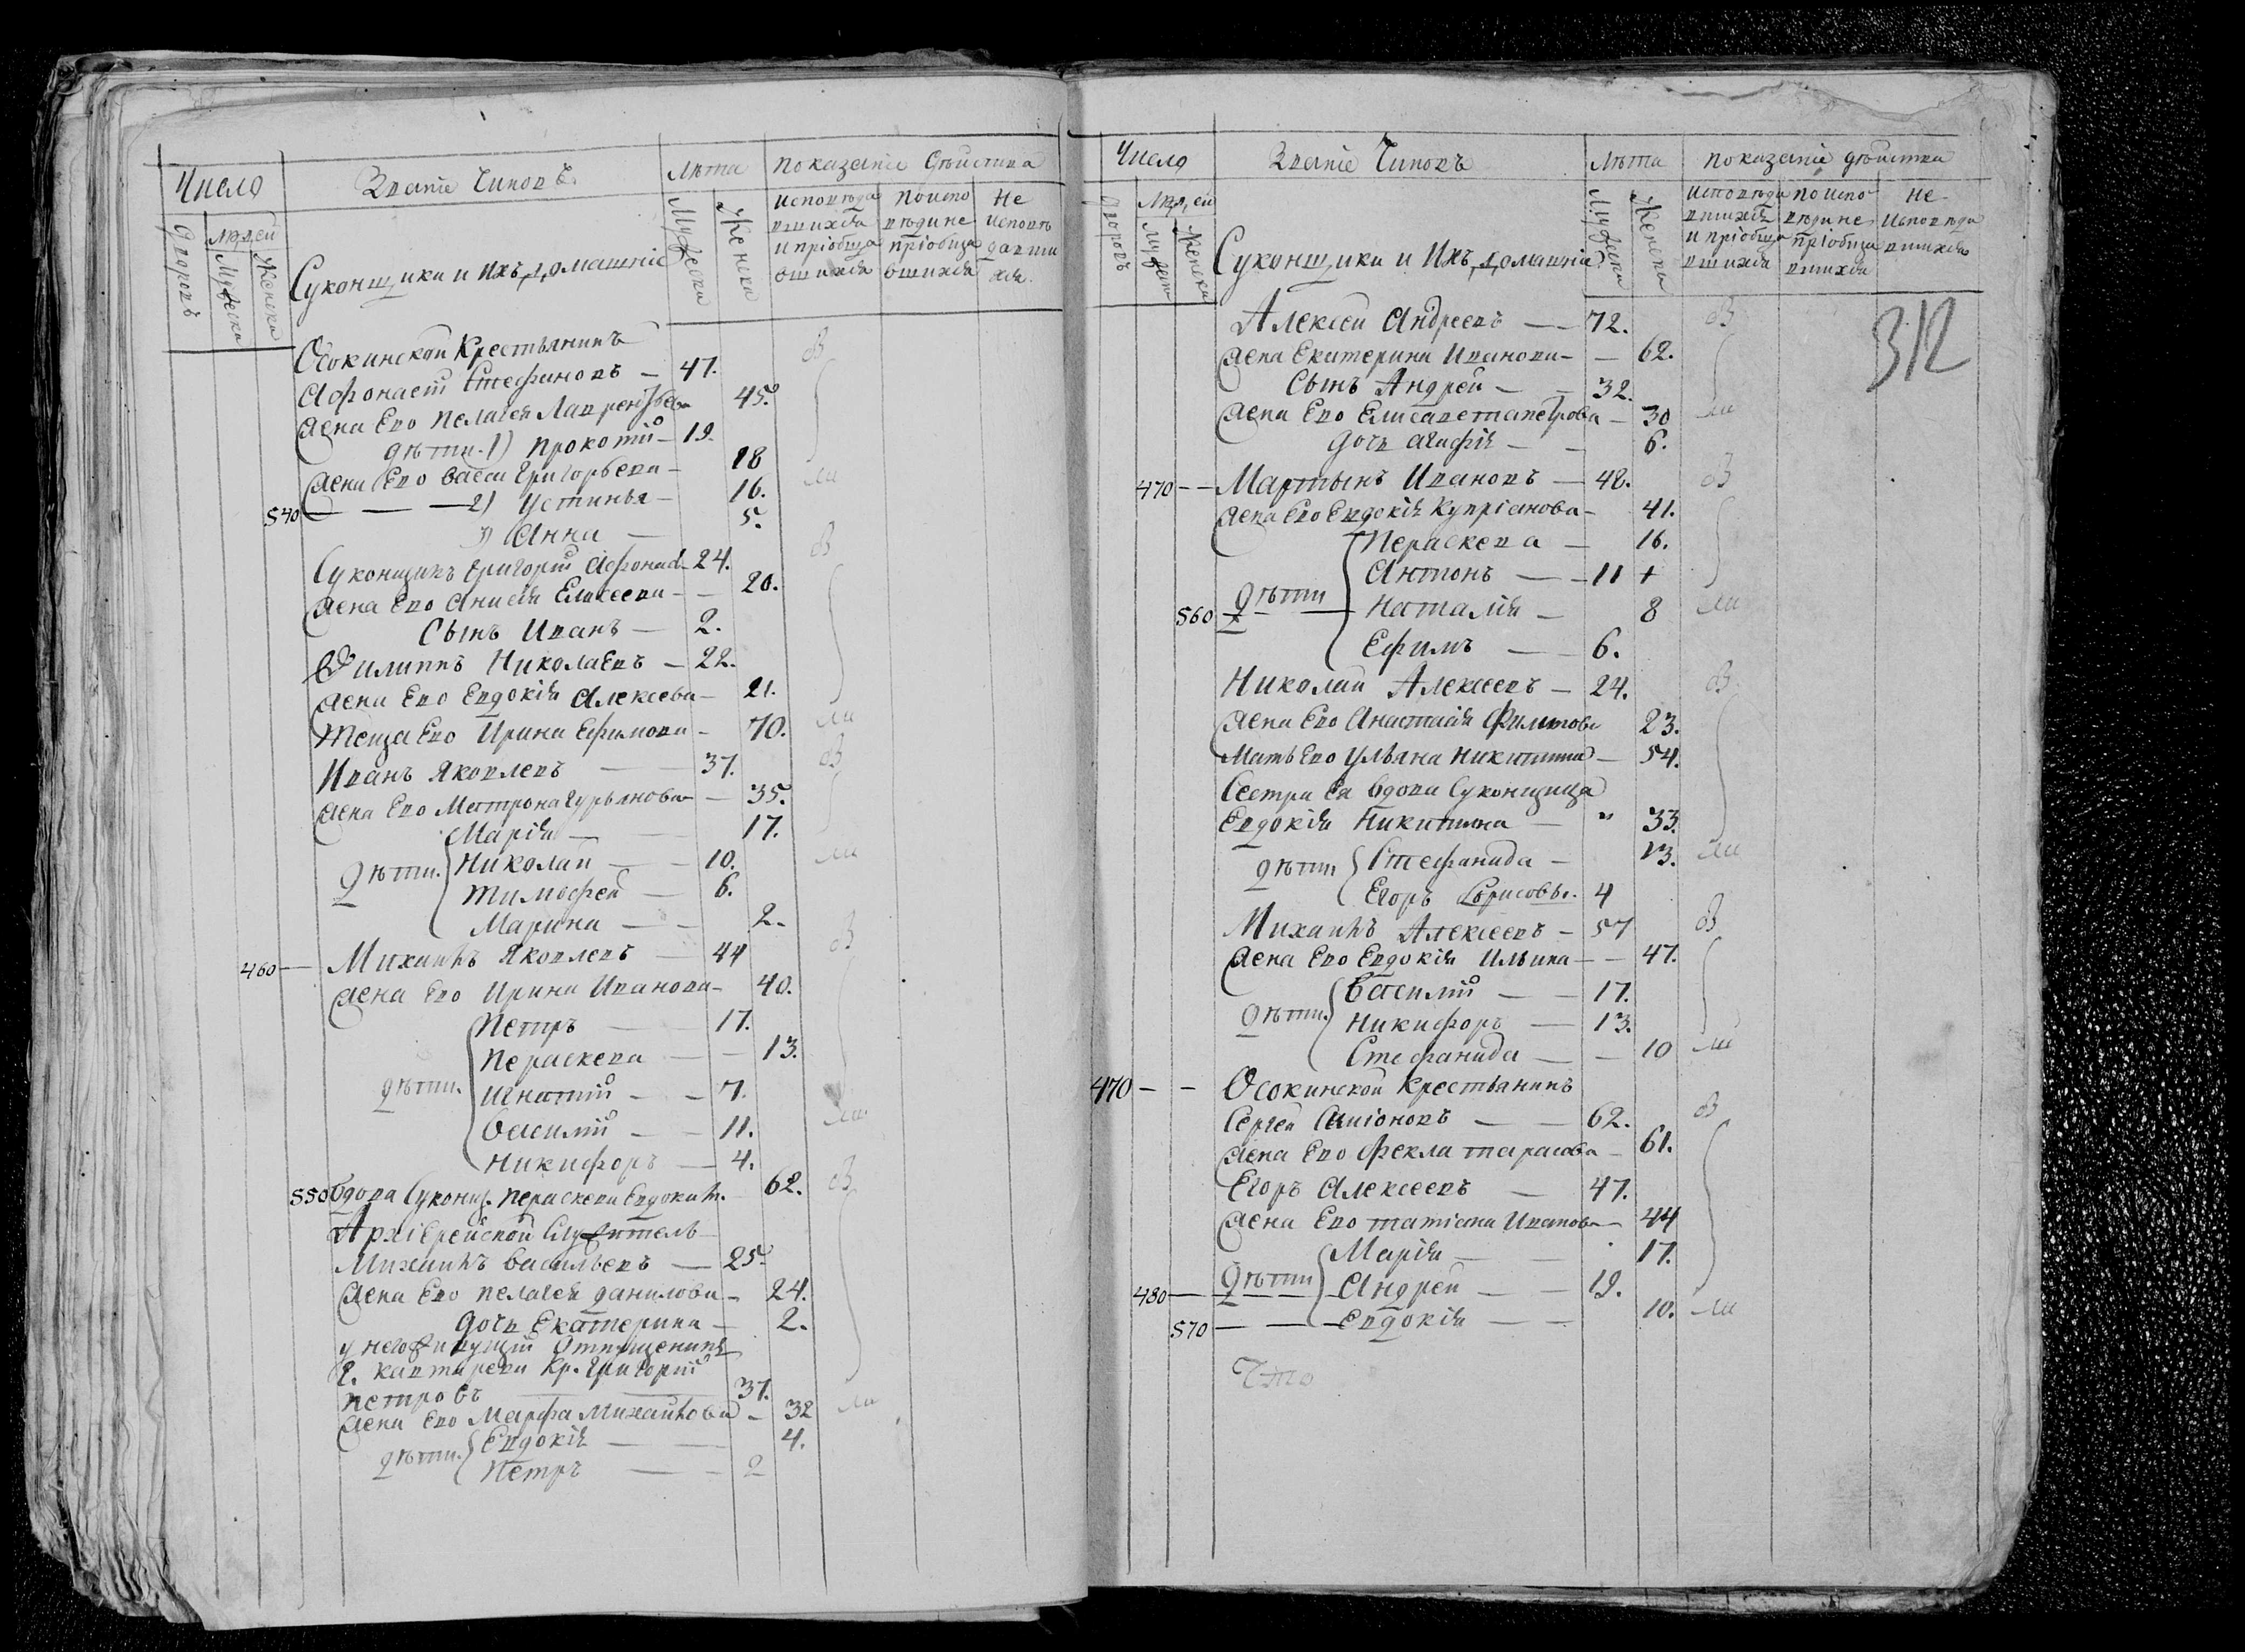 Число
Званіе Чиновъ.
Лѣта
Показаніе Дѣйства
Дворовъ
Людей
Мужеска
Женска
Суконщики и Ихъ домашніе
Мужеска
Женска
Исповѣда
вшихся
и пріобща
вшихся
По испо
вѣди не
пріобща
вшихся
Не
исповѣ
давши
хся.
Осокинской Крестьянинъ
Афонасей Стефановъ — 47.
Жена Ево Пелагея Лаврентьева 45.
Дѣти. 1) Прокопій — 19.
Жена Ево Васса Григорьева — 18
540 — — — 2) Устинья — 16.
3) Анна — 5.
Суконщикъ Григорій Афонас. 24.
Жена Ево Анисія Елисеева — 20.
Сынъ Иванъ — 2.
Филиппъ Николаевъ — 22.
Жена Ево Евдокія Алексева — 21.
Теща Ево Ирина Ефимова — 70.
Иванъ Яковлевъ — 37.
Жена Ево Матрона Гурьянова — 35.
Марія — 17.
Дѣти. Николай — 10.
Тимофей — 6.
Марина — 2.
460 — Михаилъ Яковлевъ — 44
Жена Ево Ирина Иванова — 40.
Петръ — 17.
Пераскева — 13.
Дѣти. Игнатій — 7.
Василій — 11.
Никифоръ — 4.
550 Вдова Суконщ. Пераскева Евдоким. 62.
Архіерейской Служитель
Михаилъ Васильевъ — 25.
Жена Ево Пелагея Данилова — 24.
Дочь Екатерина — 2.
У него Живущій Отпущенникъ
Г. Кр. Григорій
Петровъ 37.
Жена Ево Марфа Михайлова — 32
Дѣти. Евдокія — 4.
Петръ — 2
Число
Званіе Чиновъ
Лѣта
Показаніе дѣйства
Дворовъ
Людей
Мужеск
Женска
Суконщики и Ихъ домашніе
Мужеска
Женска
Исповѣда
вшихся
и пріобща
вшихся
По испо
вѣди не
пріобща
вшихся
Не
Исповѣда
вшихся
312
Алексей Андреевъ — 72.
Жена Екатерина Иванова — 62.
Сынъ Андрей — 32.
Жена Ево Елисавета Петрова — 30
Дочь Агафія — 6.
470 — Мартынъ Ивановъ — 48.
Жена Ево Евдокія Купріанова — 41.
Пераскева — 16.
Антонъ — 11 +
560 Дѣти Наталія — 8
Ефимъ — 6.
Николай Алексеевъ — 24.
Жена Ево Анастасія Филипова 23.
Мать Ево Ульяна Никитина — 54.
Сестра Ея Вдова Суконщица
Евдокія Никитина — " 33.
Дѣти Стефанида — 13.
Егоръ Борисовъ. 4
Михаилъ Алексеевъ — 57
Жена Ево Евдокія Ильина — 47.
Василій — 17.
Дѣти. Никифоръ — 13.
Стефанида — 10
470 — — Осокинской Крестьянинъ
Сергей Симіоновъ — 62.
Жена Ево Фекла Тарасова — 61.
Егоръ Алексеевъ — 47.
Жена Ево Татіана Иванова — 44
Марія — 17.
480 — Дѣти Андрей — 19.
570 — — Евдокія — 10.
Что